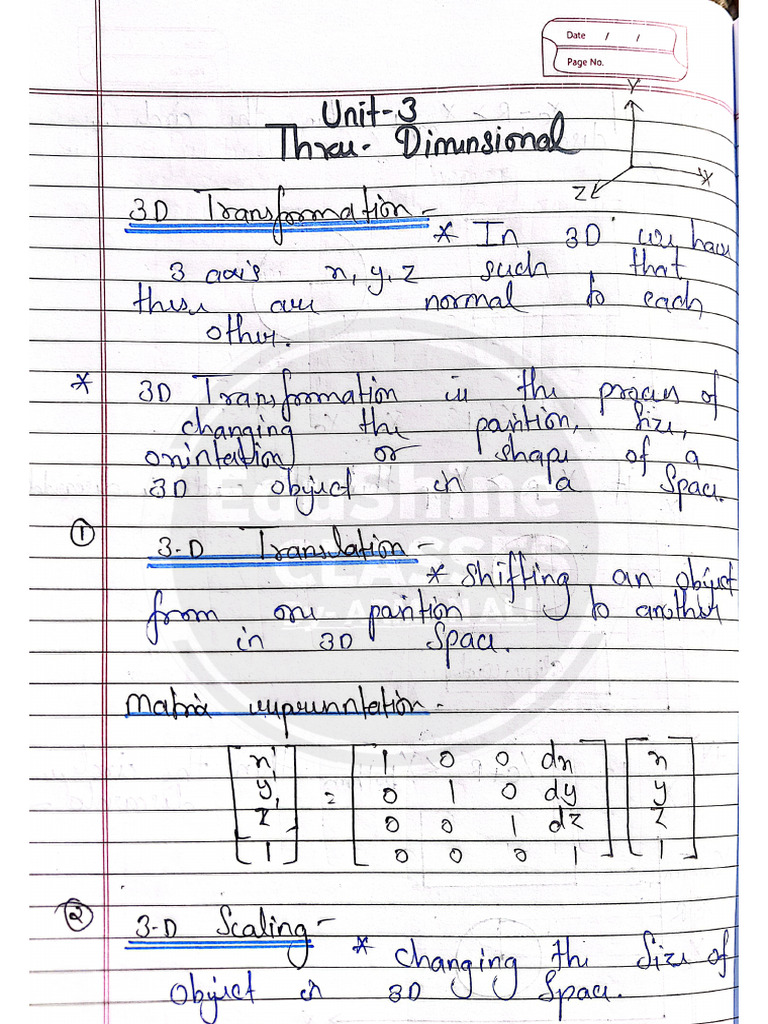 Date / /
Page No.
Unit-3
Three-Dimensional
Y
X
Z
3D Transformation -
* In 3D we have
3 axis x, y, z such that
these are normal to each
other.
* 3D Transformation is the process of
changing the position, size,
orientation or shape of a
3D object in a space.
① 3-D Translation -
* Shifting an object
from one position to another
in 3D space.
Matrix representation -
[x' = [1 0 0 dx [x
y' 0 1 0 dy y
z' 0 0 1 dz z
1] 0 0 0 1] 1]
② 3-D Scaling -
* changing the size of
object in 3D space.
EduShine
CLASSES